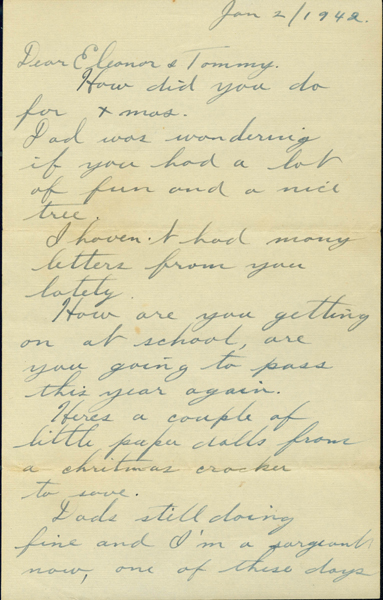 Jan 2/1942.
Dear Eleonor & Tommy.
How did you do
for xmas.
Dad was wondering
if you had a lot
of fun and a nice
tree.
I haven't had many
letters from you
lately.
How are you getting
on at school, are
you going to pass
this year again.
Heres a couple of
little paper dolls from
a chritmas cracker
to save.
Dads still doing
fine and I'm a sargeant
now, one of these days